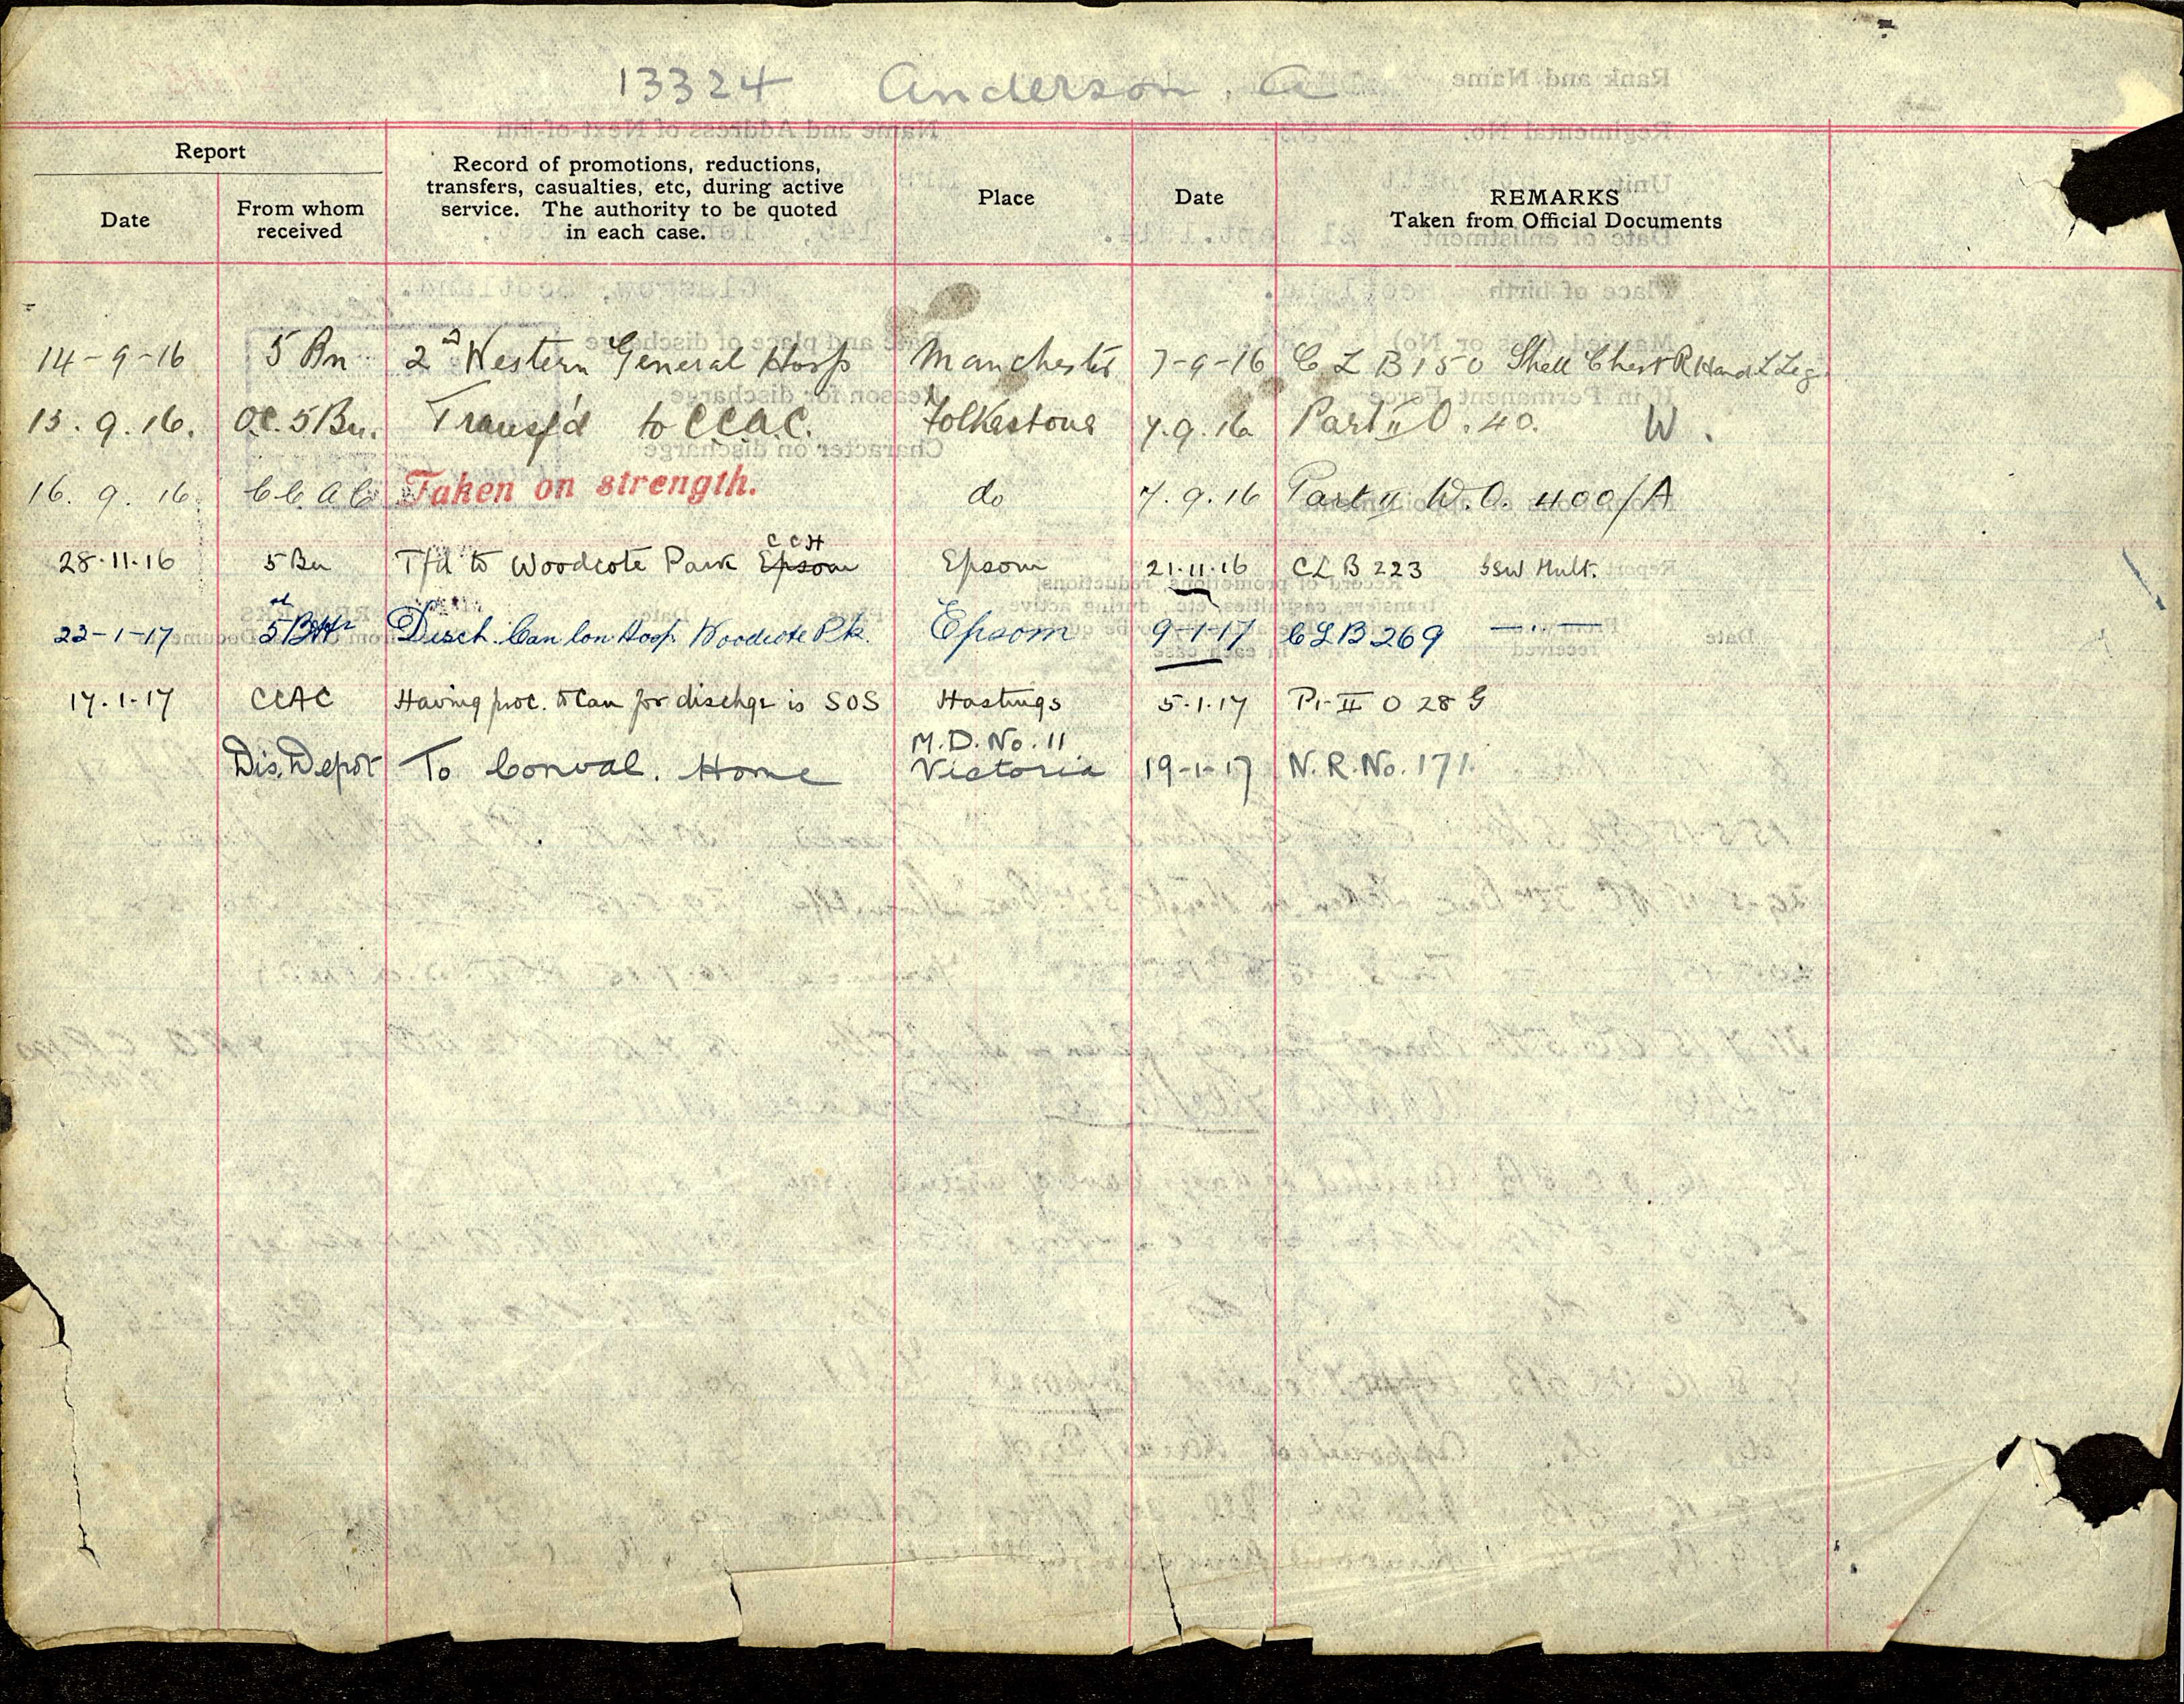 13324 Anderson, A
Report
Date
From whom
received
Record of promotions, reductions,
transfers, casualties, etc, during active
service. The authority to be quoted
in each case.
Place
Date
REMARKS
Taken from Official Documents
14-9-16 5 Bn 2nd Western General Hosp Manchester 7-9-16 C L B 150 Shell Chest R Hand L Leg
15.9.16. O.C. 5 Bn. Transf'd to CCAC. Folkestone 7.9.16 Part II O. 40. W.
16.9.16 CCAC Taken on strength. do 7.9.16 Part II W.O. 400/A
28.11.16 5 Bn Tfd to Woodcote Park Epsom CCH Epsom 21.11.16 CLB 223 SSW Mult.
22-1-17 5 Disch. Can Con Hosp Woodcote Pk. Epsom 9-1-17 CLB 269 —"—
17.1.17 CCAC Having proc. to Can for dischge is SOS Hastings 5.1.17 Pt II O 28 G
M.D. No. 11
Dis. Depot To Conval. Home Victoria 19-1-17 N.R. No. 171.